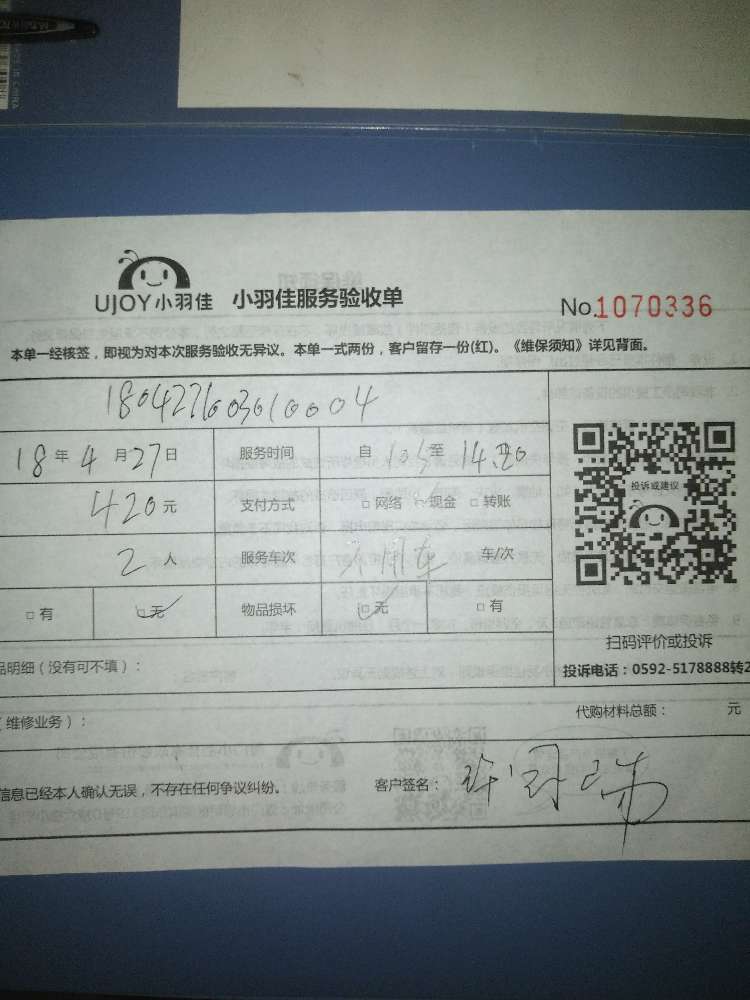 UJOY小羽佳 小羽佳服务验收单
No.1070336
本单一经核签，即视为对本次服务验收无异议。本单一式两份，客户留存一份(红)。《维保须知》详见背面。
18年4月27日 服务时间 自 至 14:20
420元 支付方式 □网络 □现金 □转账
投诉或建议
2人 服务车次 不用车 车/次
□有 □无 物品损坏 □无 □有
扫码评价或投诉
品明细（没有可不填）：
投诉电话：0592-5178888转2
（维修业务）： 代购材料总额： 元
信息已经本人确认无误，不存在任何争议纠纷。 客户签名：